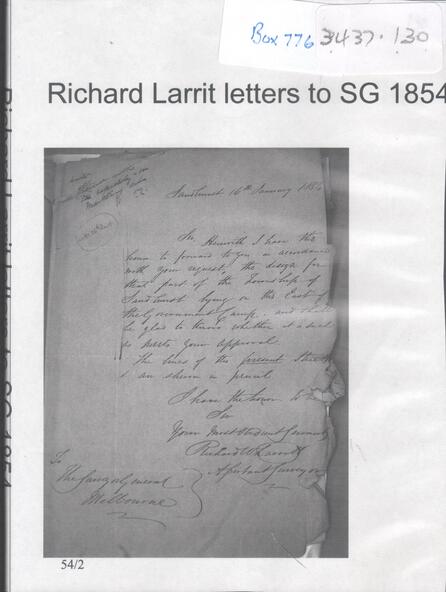 Box 776 3437.130
Richard Larrit letters to SG 1854
Sandhurst 16th January 1854
Sir, Herewith I have the
honor to forward to you in accordance
with your request, the design for
that part of the Township of
Sandhurst lying on the East of
the Government Camp, and shall
be glad to know whether it
meets your approval
The lines of the present Streets
are shewn in pencil
I have the honor to
Sir
Your most obedient Servant
Richard W Larritt
Assistant Surveyor
To
The Surveyor General
Melbourne
54/2